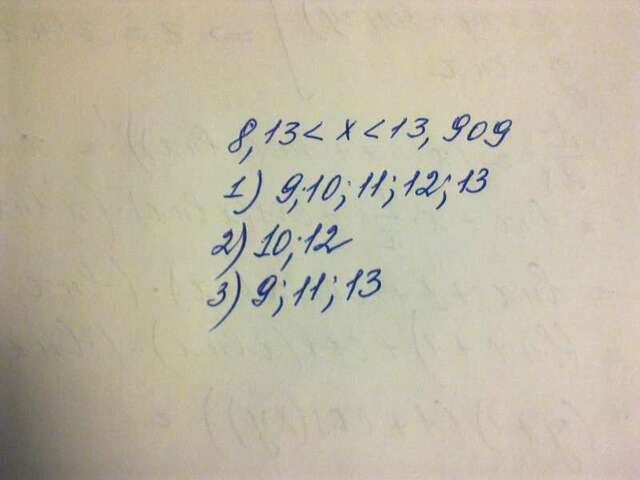 8,13 < x < 13,909
1) 9;10;11;12;13
2) 10;12
3) 9;11;13